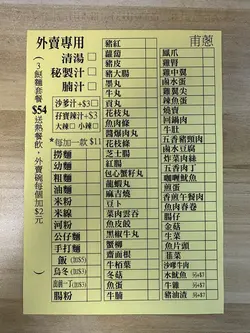 外賣專用
甫蔥
清湯
秘製汁
腩汁
沙爹汁+$3
大辣 小辣
*每加一款 $11
(3餸麵套餐 $54 送熱餐飲,外賣碗每個加2元)
撈麵
幼麵
粗麵
油麵
米粉
米線
河粉
公仔麵
手打麵
飯
烏冬
腸粉
豬紅
蘿蔔
豬皮
豬大腸
墨丸
牛丸
貢丸
花枝丸
魚肉條
醬爆肉丸
魚扎
芝士腸
紅腸
包心蟹籽丸
龍蝦丸
麻吉燒
豆卜
菜肉雲吞
魚皮餃
黑椒牛丸
蟹柳
齋面根
牛栢葉
冬菇
牛腩
鳳爪
雞腎
雞中翼
鹵水蛋
雞翼尖
辣魚蛋
燒賣
回鍋肉
牛肚
五香豬頸肉
鹵水豆腐
炸菜肉絲
五香肉丁
咖喱魷魚
煎蛋
香煎午餐肉
魚卷
腸仔
金菇
生菜
魚片頭
韮菜
沙嗲牛肉
水魷魚
牛雜
豬油渣